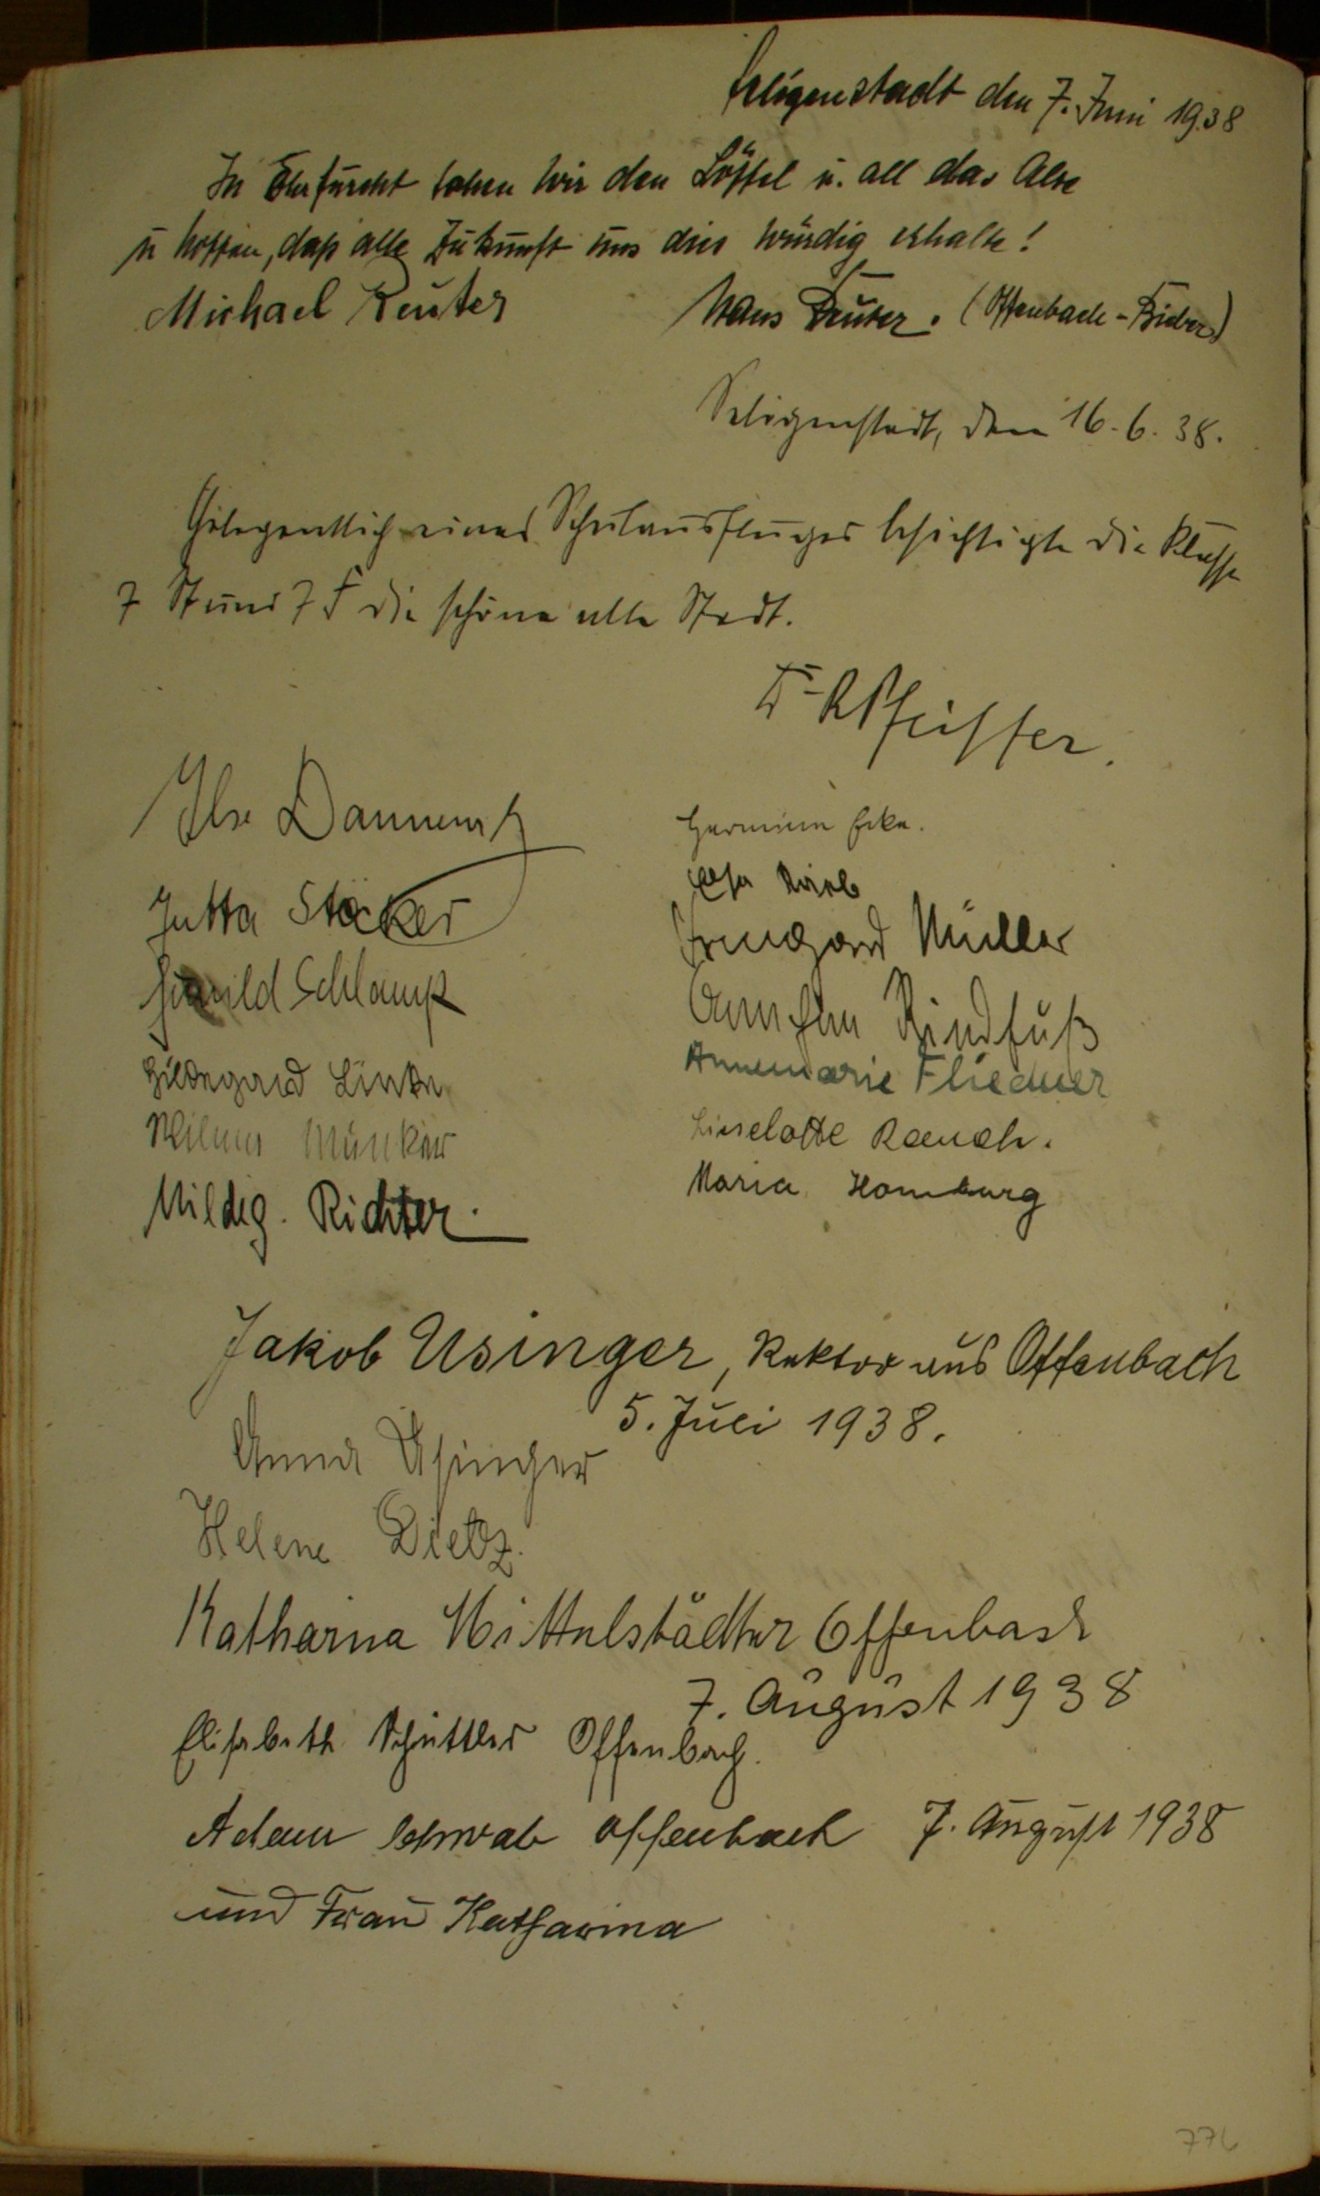 Seligenstadt den 7. Juni 1938
In Ehrfurcht sahen wir den Löffel u. all das Alte
u hoffen, daß alle Zukunft uns dies würdig erhalte!
Michael Reuter
Hans Reuter. (Offenbach-Bieber)
Seligenstadt, den 16.6.38.
Gelegentlich eines Schulausfluges besichtigte die Klasse
7 St und 7 F die schöne alte Stadt.
Dr R Pfeiffer.
Ilse
Jutta Stöcker
Schlamp
Hildegard Linke
Wilma Münker
Hildeg. Richter.
Hermine Ecke.
Irmgard Müller
Ännchen Rindfuß
Annemarie Fliedner
Lieselotte Rauch.
Maria Homburg
Jakob Usinger, Rektor aus Offenbach
5. Juli 1938.
Anna Usinger
Helene Dietz.
Katharina Mittelstädter Offenbach
7. August 1938
Elisabeth Schüttler Offenbach.
Adam Schwab Offenbach 7. August 1938
und Frau Katharina